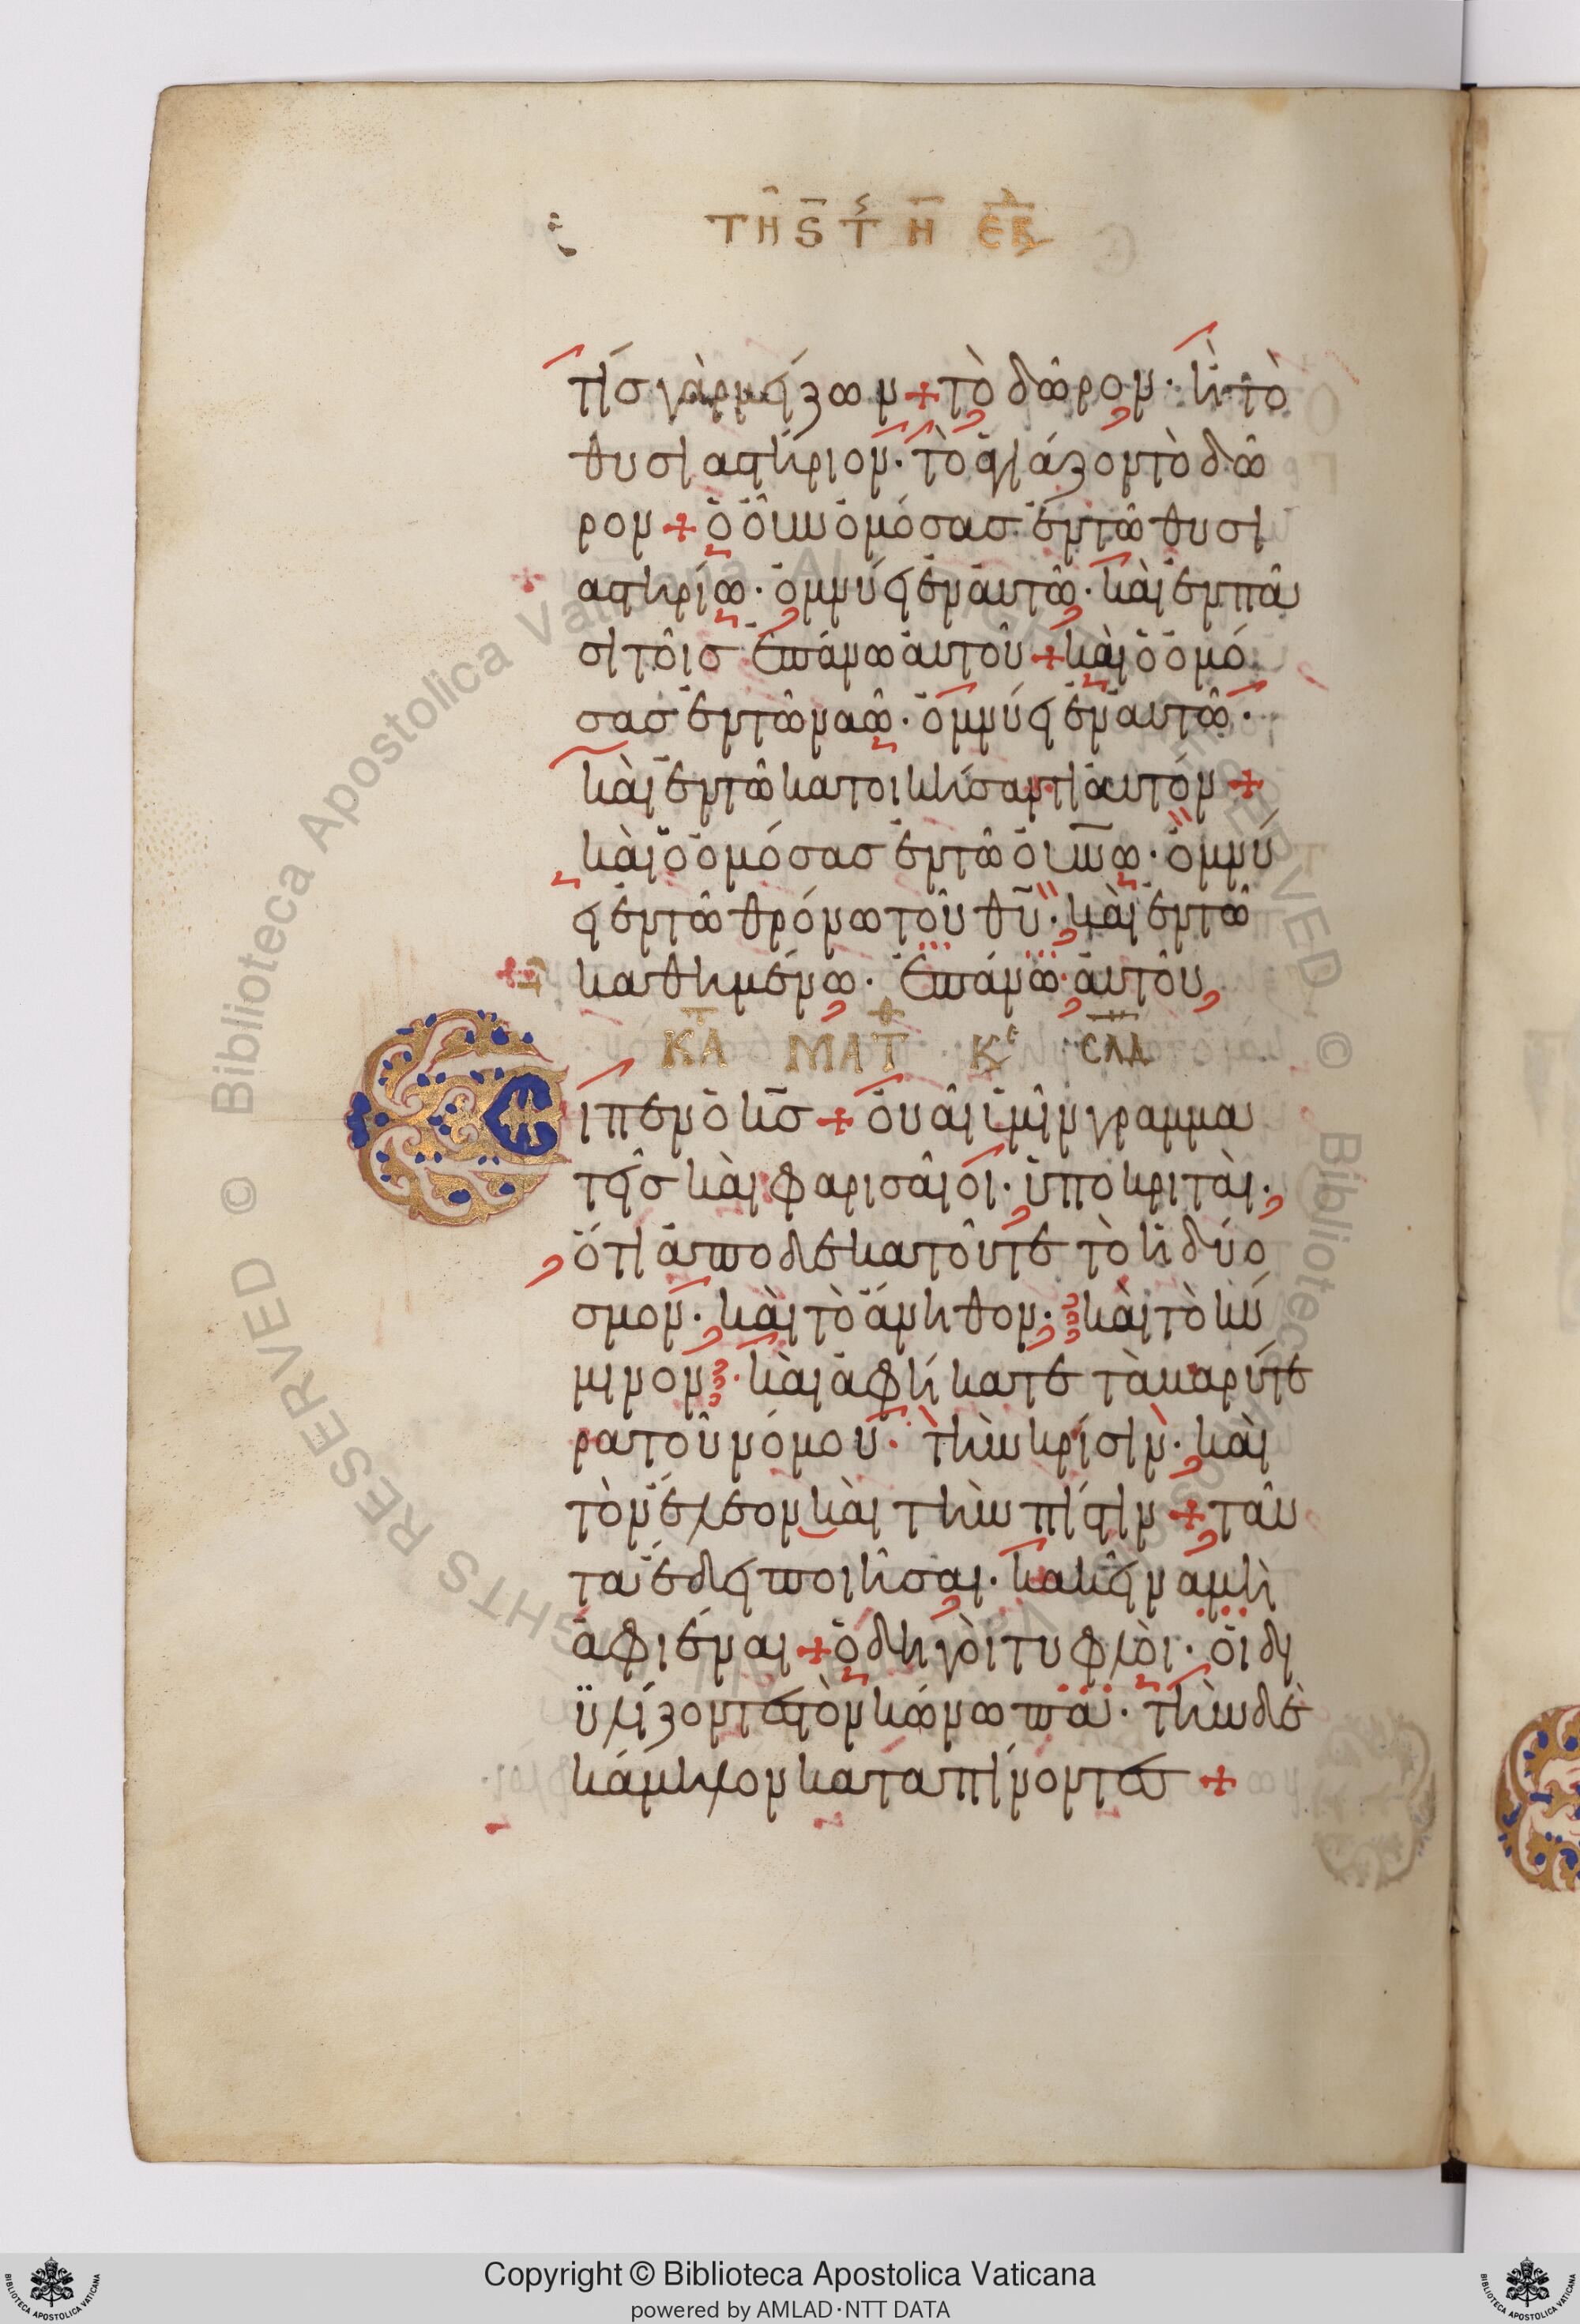 ΤΗ Ϛ Τ Η ΕΒ
τίσ γὰρ μείζων + τὸ δῶρον· ἢ τὸ
θυσιαστήριον· τὸ ἁγιάζον τὸ δῶ
ρον + ὁ οὖν ὀμόσασ ἐν τῶ θυσι
αστηρίω· ὀμνύει ἐν αὐτῶ· καὶ ἐν πᾶ
σι τοῖσ ἐπάνω αὐτοῦ + καὶ ὁ ὀμό
σασ ἐν τῶ ναῶ· ὀμνύει ἐν αὐτῶ·
καὶ ἐν τῶ κατοικήσαντι αὐτόν +
καὶ ὁ ὀμόσασ ἐν τῶ οὐνῶ· ὀμνύ
ει ἐν τῶ θρόνω τοῦ θυ· καὶ ἐν τῶ
καθημένω· ἐπάνω αὐτοῦ
ΚΑ ΜΑΤ Κε ΣΛΔ
Ειπεν ὁ κσ + οὐαὶ ὑμῖν γραμμα
τεῖσ καὶ φαρισαῖοι· ὑποκριταὶ·
ὅτι ἀποδεκατοῦτε τὸ ἡδύο
σμον· καὶ τὸ ἄνηθον· καὶ τὸ κύ
μινον· καὶ ἀφήκατε τὰ βαρύτε
ρα τοῦ νόμου· τὴν κρίσιν· καὶ
τὸν ἔλεον καὶ τὴν πίστιν + ταῦ
τα ἔδει ποιῆσαι· κακεῖνα μὴ
ἀφιέναι + ὁδηγοὶ τυφλοὶ· οἱ δι
ϋλίζοντες τὸν κώνωπα· τὴν δὲ
κάμηλον καταπίνοντες +
Copyright © Biblioteca Apostolica Vaticana
powered by AMLAD·NTT DATA